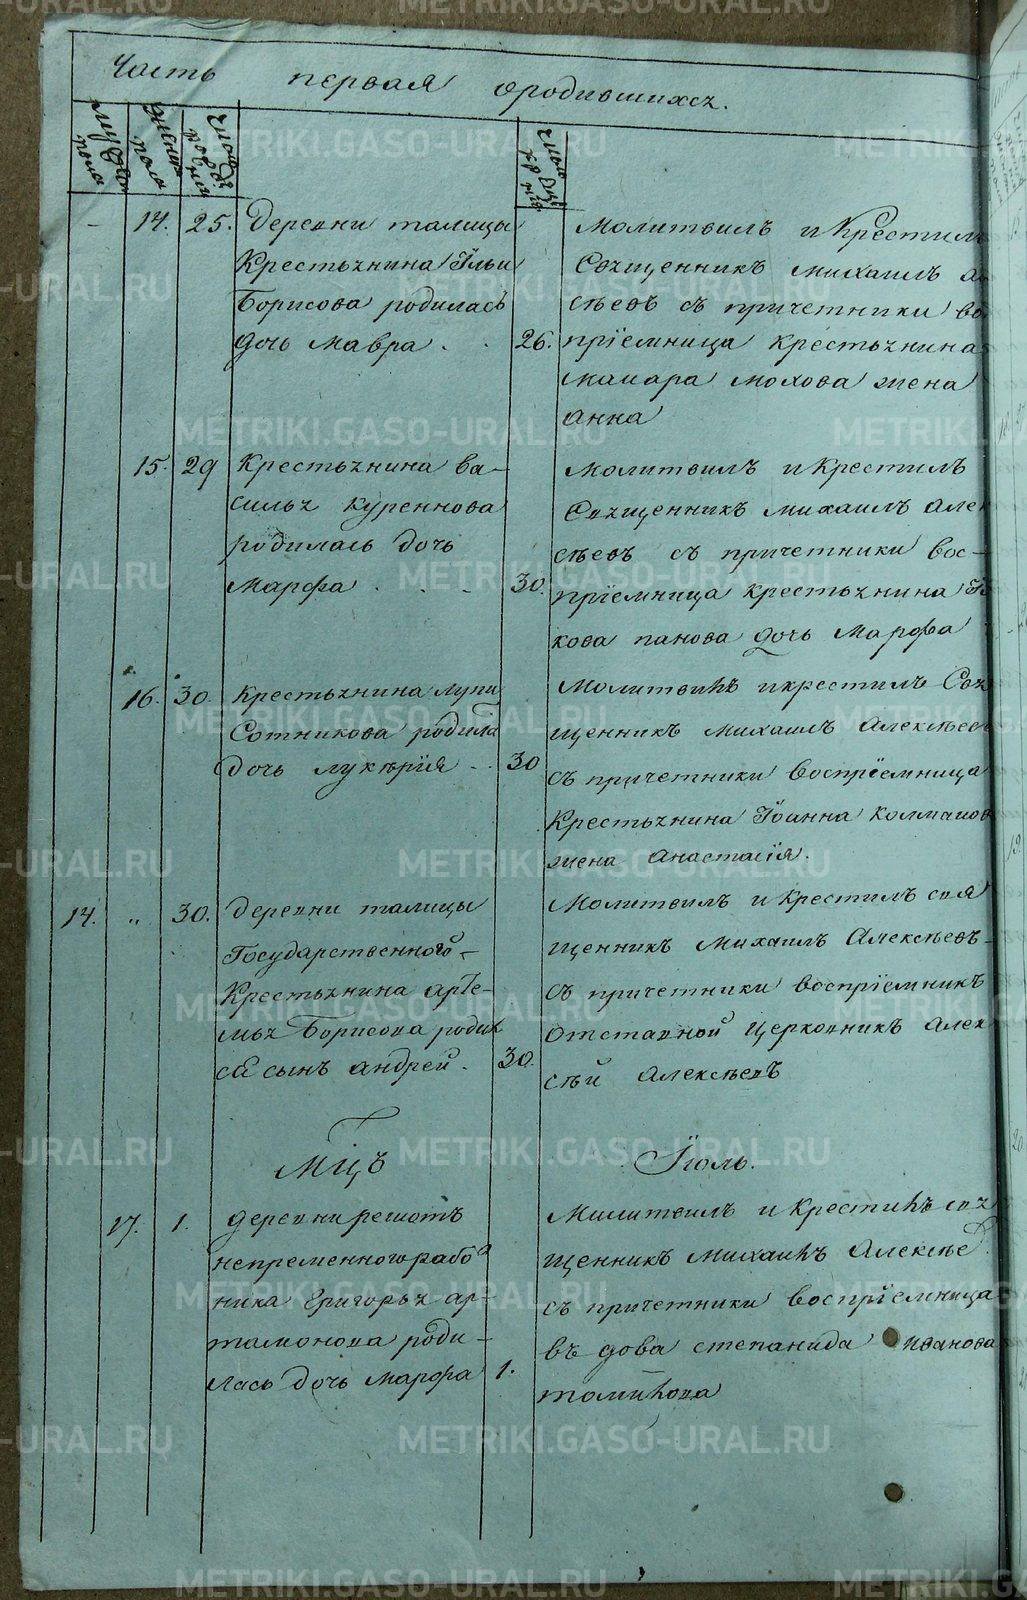 Часть первая ородившихся.
Мужеск пола
Женска пола
Число рождения
Число крещения
- 14. 25. Деревни талицы
Крестьянина Ильи
Борисова родилась
дочь Мавра . . 26.
Молитвилъ и Крестилъ
Священникъ Михаилъ але
сѣевъ съ причетники во
прїемница крестьянина
Макара Мохова жена
анна
15. 29 Крестьянина ва-
силья куреннова
родилась дочь
Марфа . . . 30.
Молитвилъ и Крестилъ
Священникъ Михаилъ Алек
сѣевъ съ причетники вос-
прїемница крестьянина Iя
кова панова дочь Марфа
16. 30. Крестьянина лупи
Сотникова родила
дочь лукѣрїя . . 30
Молитвилъ и крестилъ Свя
щенникъ Михаилъ Алексѣевъ
съ причетники воспрїемница
Крестьянина Iоанна
жена анастасїя.
14. „ 30. Деревни талицы
Государственного
Крестьянина арте-
мья Борисова родил
ся сынъ андрей. 30.
Молитвилъ и Крестилъ свя
щенникъ Михаилъ Алексѣевъ
съ причетники воспрїемникъ
отставной церковникъ Алек
сѣй Алексѣевъ
Мцъ Iюль.
17. 1. деревни решотъ
непременного рабо
ника Григорья ар-
тамонова роди-
лась дочь Марфа 1.
Милитвилъ и Крестилъ свя
щенникъ Михаилъ Алексѣе
съ причетники воспрїемница
въ дова степанида Иванова
томилова
METRIKI.GASO-URAL.RU